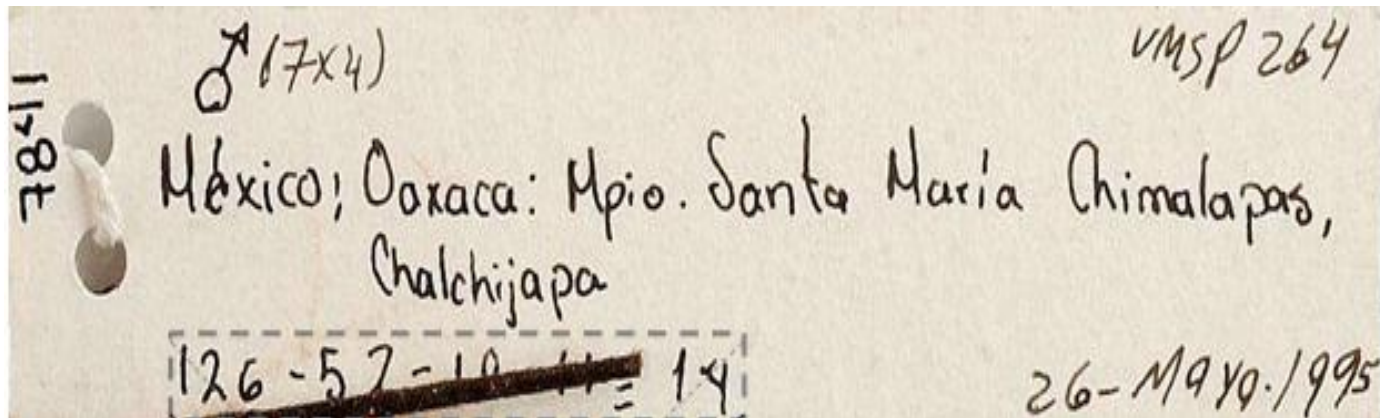 7841
♂ (7x4) VMSP 264
México; Oaxaca: Mpio. Santa María Chimalapas,
Chalchijapa
126 - = 14
26-Mayo.1995